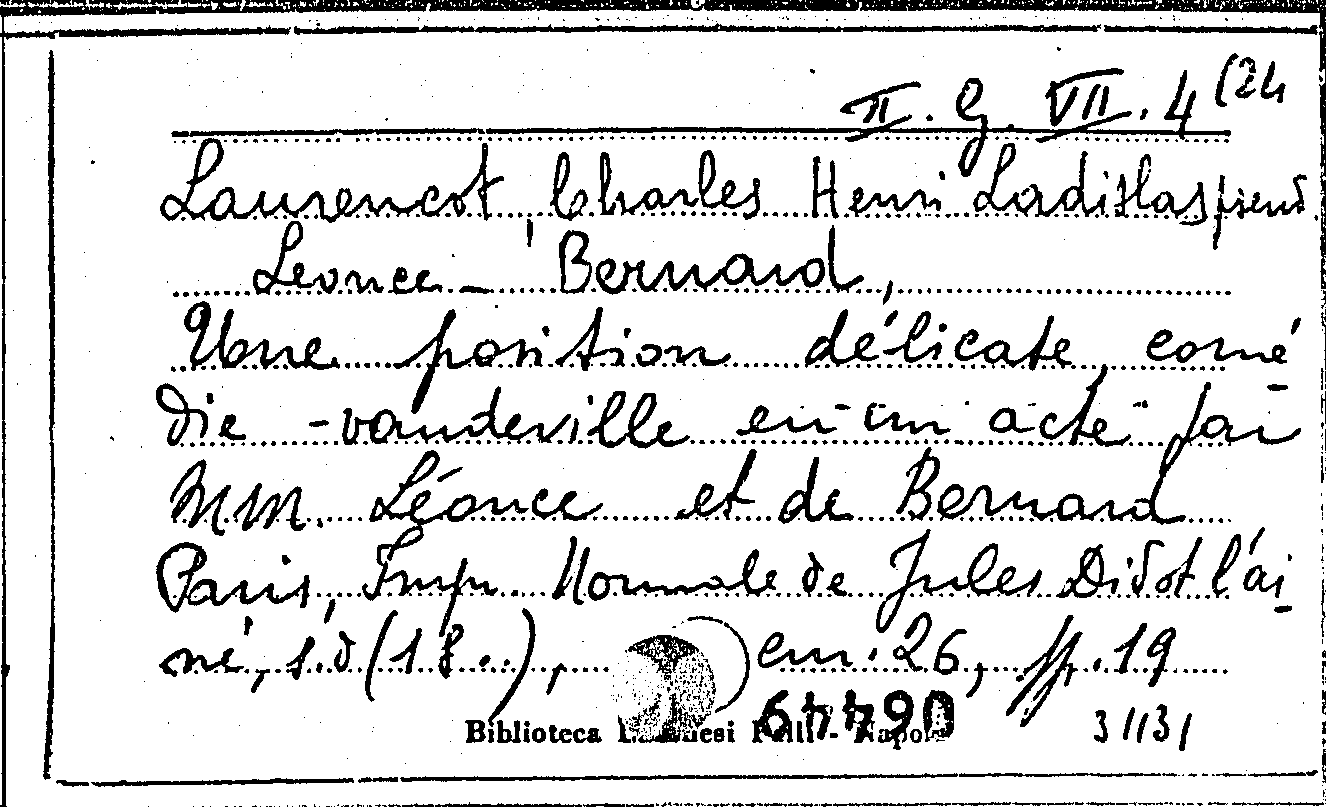 II. G. VII. 4 (24
Laurencot, Charles Henri Ladislas pseud.
Leonce - Bernard,
Une position délicate, comé-
die - vaudeville en un acte par
MM. Léonce et de Bernard
Paris, Imp. Normale de Jules Didot l'ai-
né, s.d (18..), cm. 26, pp. 19
Biblioteca Napoli
064449